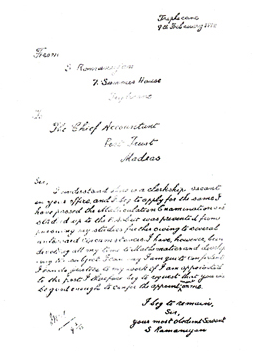 Triplicane
9th February 1912
From
S Ramanujan
7 Summer House
Triplicane
To
The Chief Accountant
Port Trust
Madras
Sir,
I understand there is a clerkship vacant
in your office, and I beg to apply for the same. I
have passed the Matriculation Examination and
studied up to the F.A. but was prevented from
pursuing my studies further owing to several
untoward circumstances. I have, however, been
devoting all my time to Mathematics and develop
ing the subject. I can say I am quite confident
I can do justice to my work if I am appointed
to the post. I therefore beg to request that you will
be good enough to confer the appointment on me.
I beg to remain,
Sir,
your most obedient servant
S Ramanujan